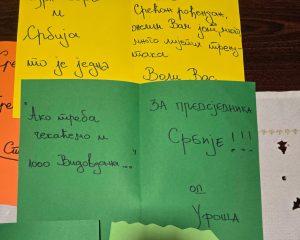 и
Србија
то је једна
Срећан рођендан,
желим Вам још много
много лијепих трену-
така
Воли Вас
"Ако треба
чекаћемо и
1000 Видовдана..."
ЗА ПРЕДСЈЕДНИКА
СРБИЈЕ!!!
ОД
УРОША